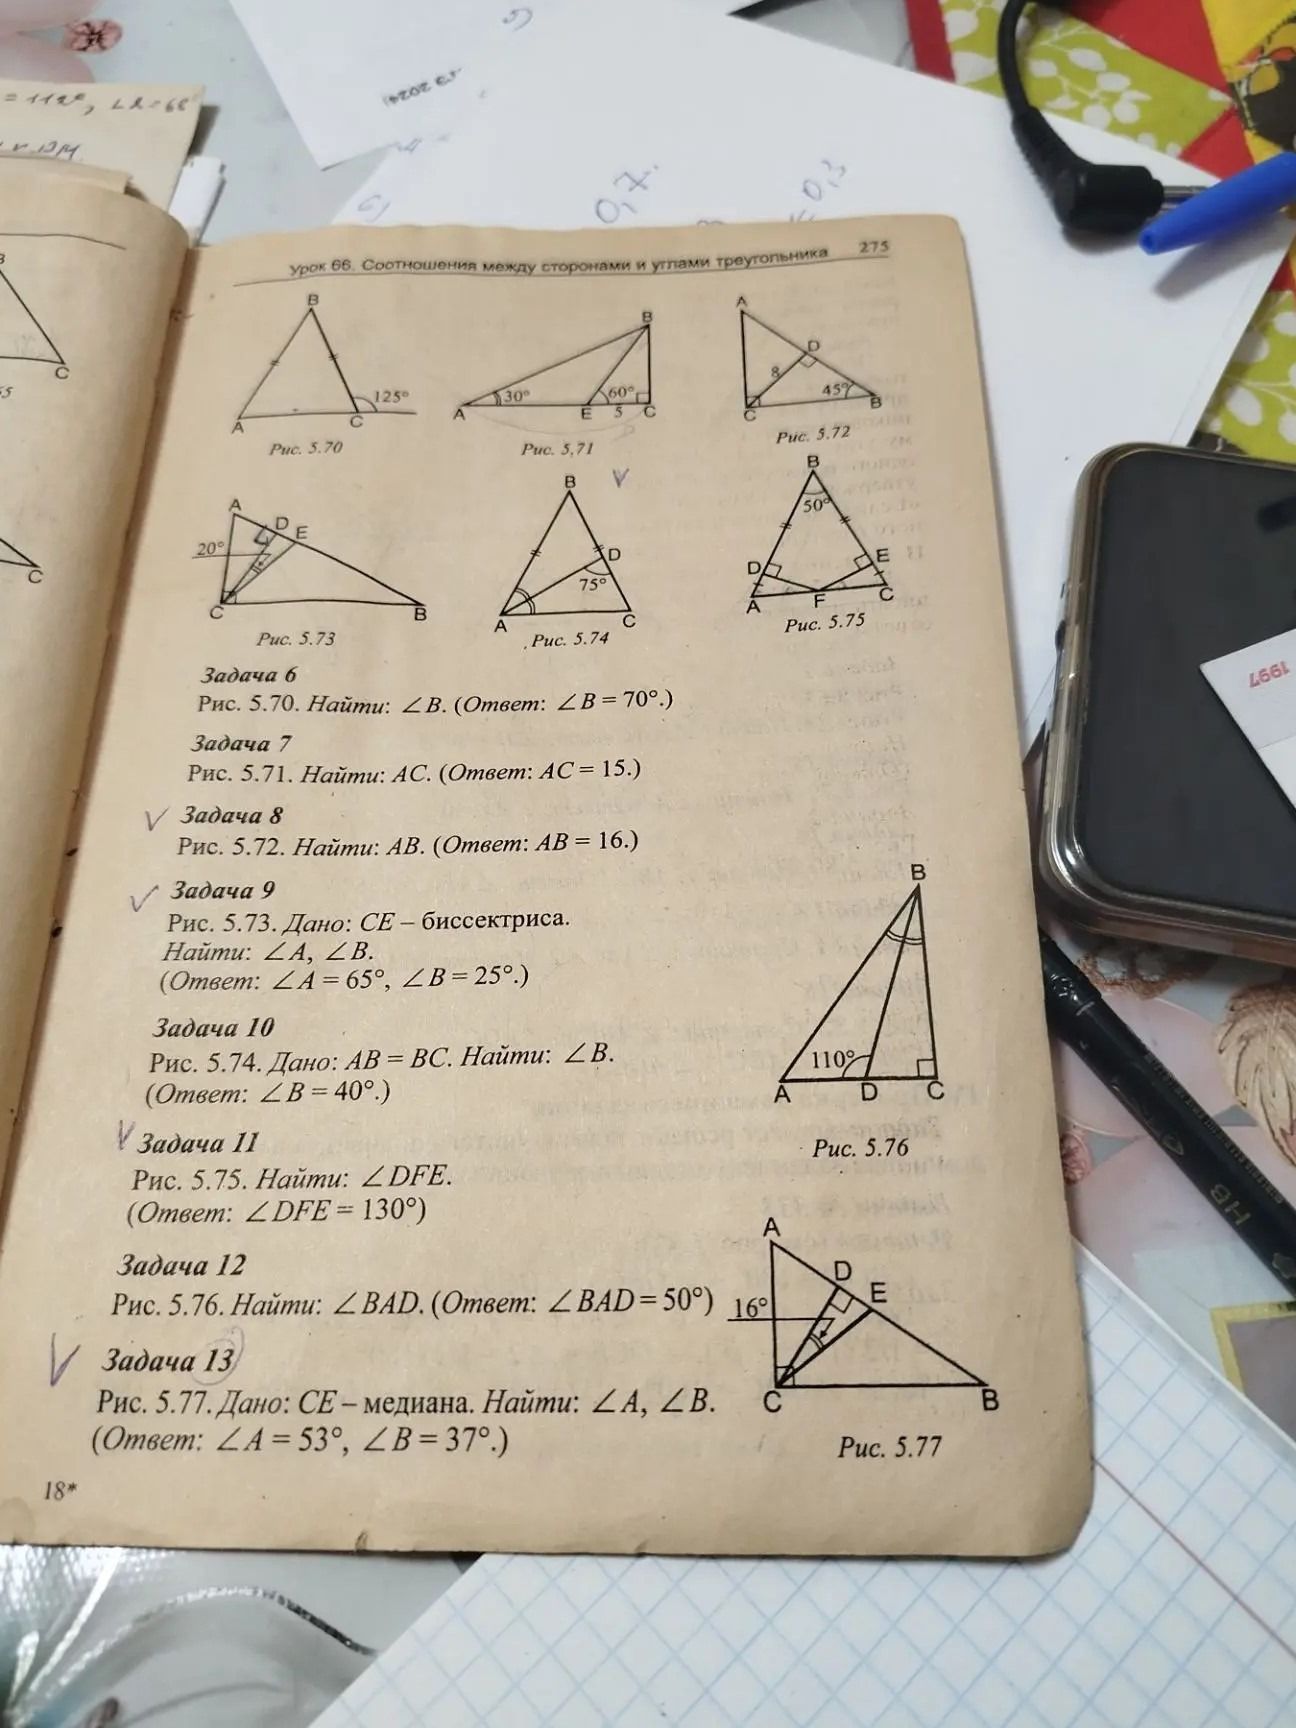 = 112°, ∠2 = 68°
2024)
0,7.
= 0,3
Урок 66. Соотношения между сторонами и углами треугольника 275
B
A
C
125°
Рис. 5.70
B
A
30°
60°
E
5
C
Рис. 5,71
A
D
8
45°
C
B
Рис. 5.72
C
C
A
D
E
20°
C
B
Рис. 5.73
B
D
75°
A
C
Рис. 5.74
B
50°
D
E
A
F
C
Рис. 5.75
Задача 6
Рис. 5.70. Найти: ∠B. (Ответ: ∠B = 70°.)
Задача 7
Рис. 5.71. Найти: AC. (Ответ: AC = 15.)
Задача 8
Рис. 5.72. Найти: AB. (Ответ: AB = 16.)
Задача 9
Рис. 5.73. Дано: CE – биссектриса.
Найти: ∠A, ∠B.
(Ответ: ∠A = 65°, ∠B = 25°.)
Задача 10
Рис. 5.74. Дано: AB = BC. Найти: ∠B.
(Ответ: ∠B = 40°.)
Задача 11
Рис. 5.75. Найти: ∠DFE.
(Ответ: ∠DFE = 130°)
Задача 12
Рис. 5.76. Найти: ∠BAD. (Ответ: ∠BAD = 50°)
Задача 13
Рис. 5.77. Дано: CE – медиана. Найти: ∠A, ∠B.
(Ответ: ∠A = 53°, ∠B = 37°.)
18*
B
110°
A
D
C
Рис. 5.76
A
D
E
16°
C
B
Рис. 5.77
1997
HB